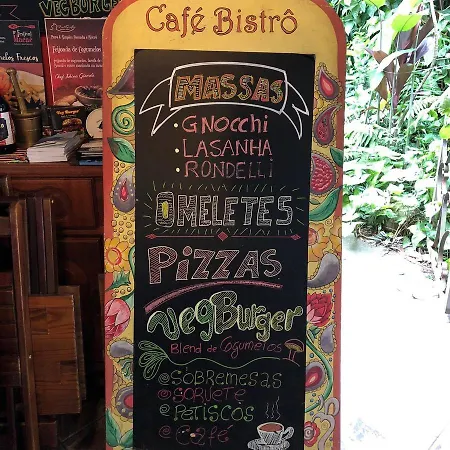 Café Bistrô
MASSAS
• GNOCCHI
• LASANHA
• RONDELLI
OMELETES
PIZZAS
VegBurger
Blend de Cogumelos
SOBREMESAS
SORVETE
PETISCOS
Café
VEGBURGER
Feijoada de Cogumelos